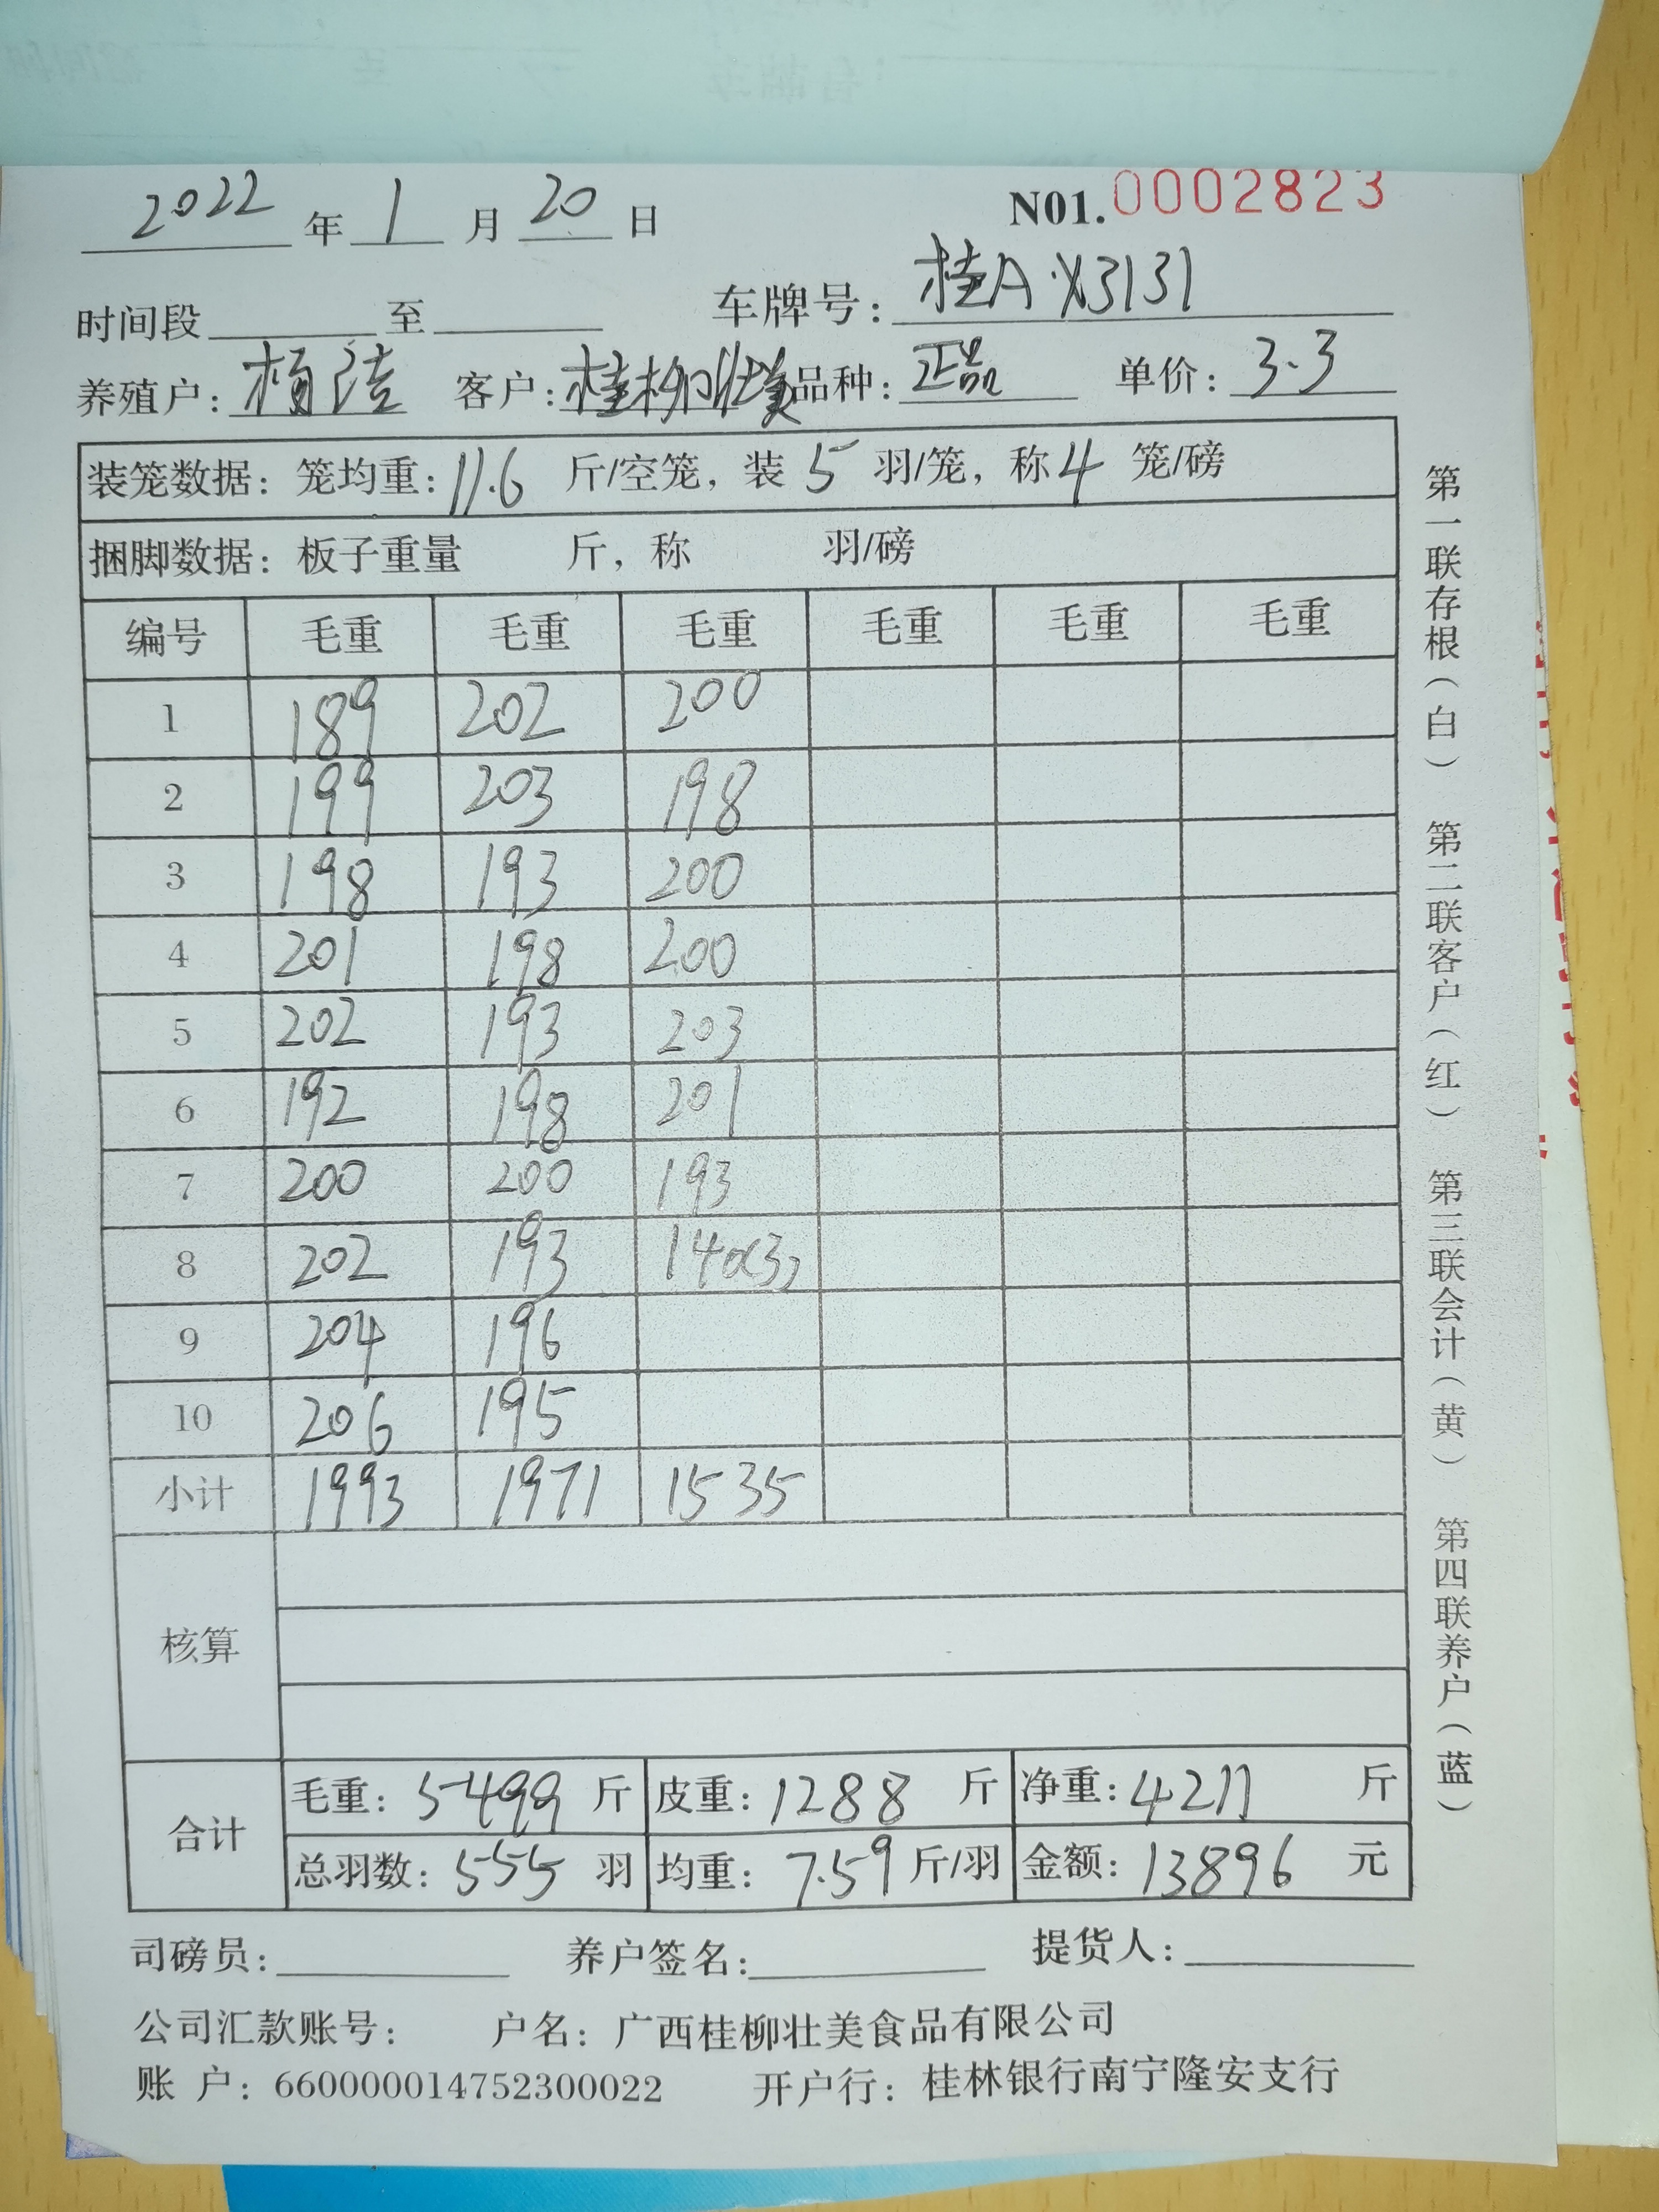 2022 年 1 月 20 日 N01.0002823
时间段 至 车牌号：桂A·X3131
养殖户：杨 客户：桂柳壮美 品种：正品 单价：3.3
装笼数据：笼均重：11.6 斤/空笼，装 5 羽/笼，称 4 笼/磅
捆脚数据：板子重量 斤，称 羽/磅
编号 毛重 毛重 毛重 毛重 毛重 毛重
1 189 202 200
2 199 203 198
3 198 193 200
4 201 198 200
5 202 193 203
6 192 198 201
7 200 200 193
8 202 193 140(3)
9 204 196
10 206 195
小计 1993 1971 1535
核算
合计
毛重：5499 斤 皮重：1288 斤 净重：4211 斤
总羽数：555 羽 均重：7.59 斤/羽 金额：13896 元
司磅员： 养户签名： 提货人：
公司汇款账号： 户名：广西桂柳壮美食品有限公司
账 户：660000014752300022 开户行：桂林银行南宁隆安支行
第一联存根（白） 第二联客户（红） 第三联会计（黄） 第四联养户（蓝）